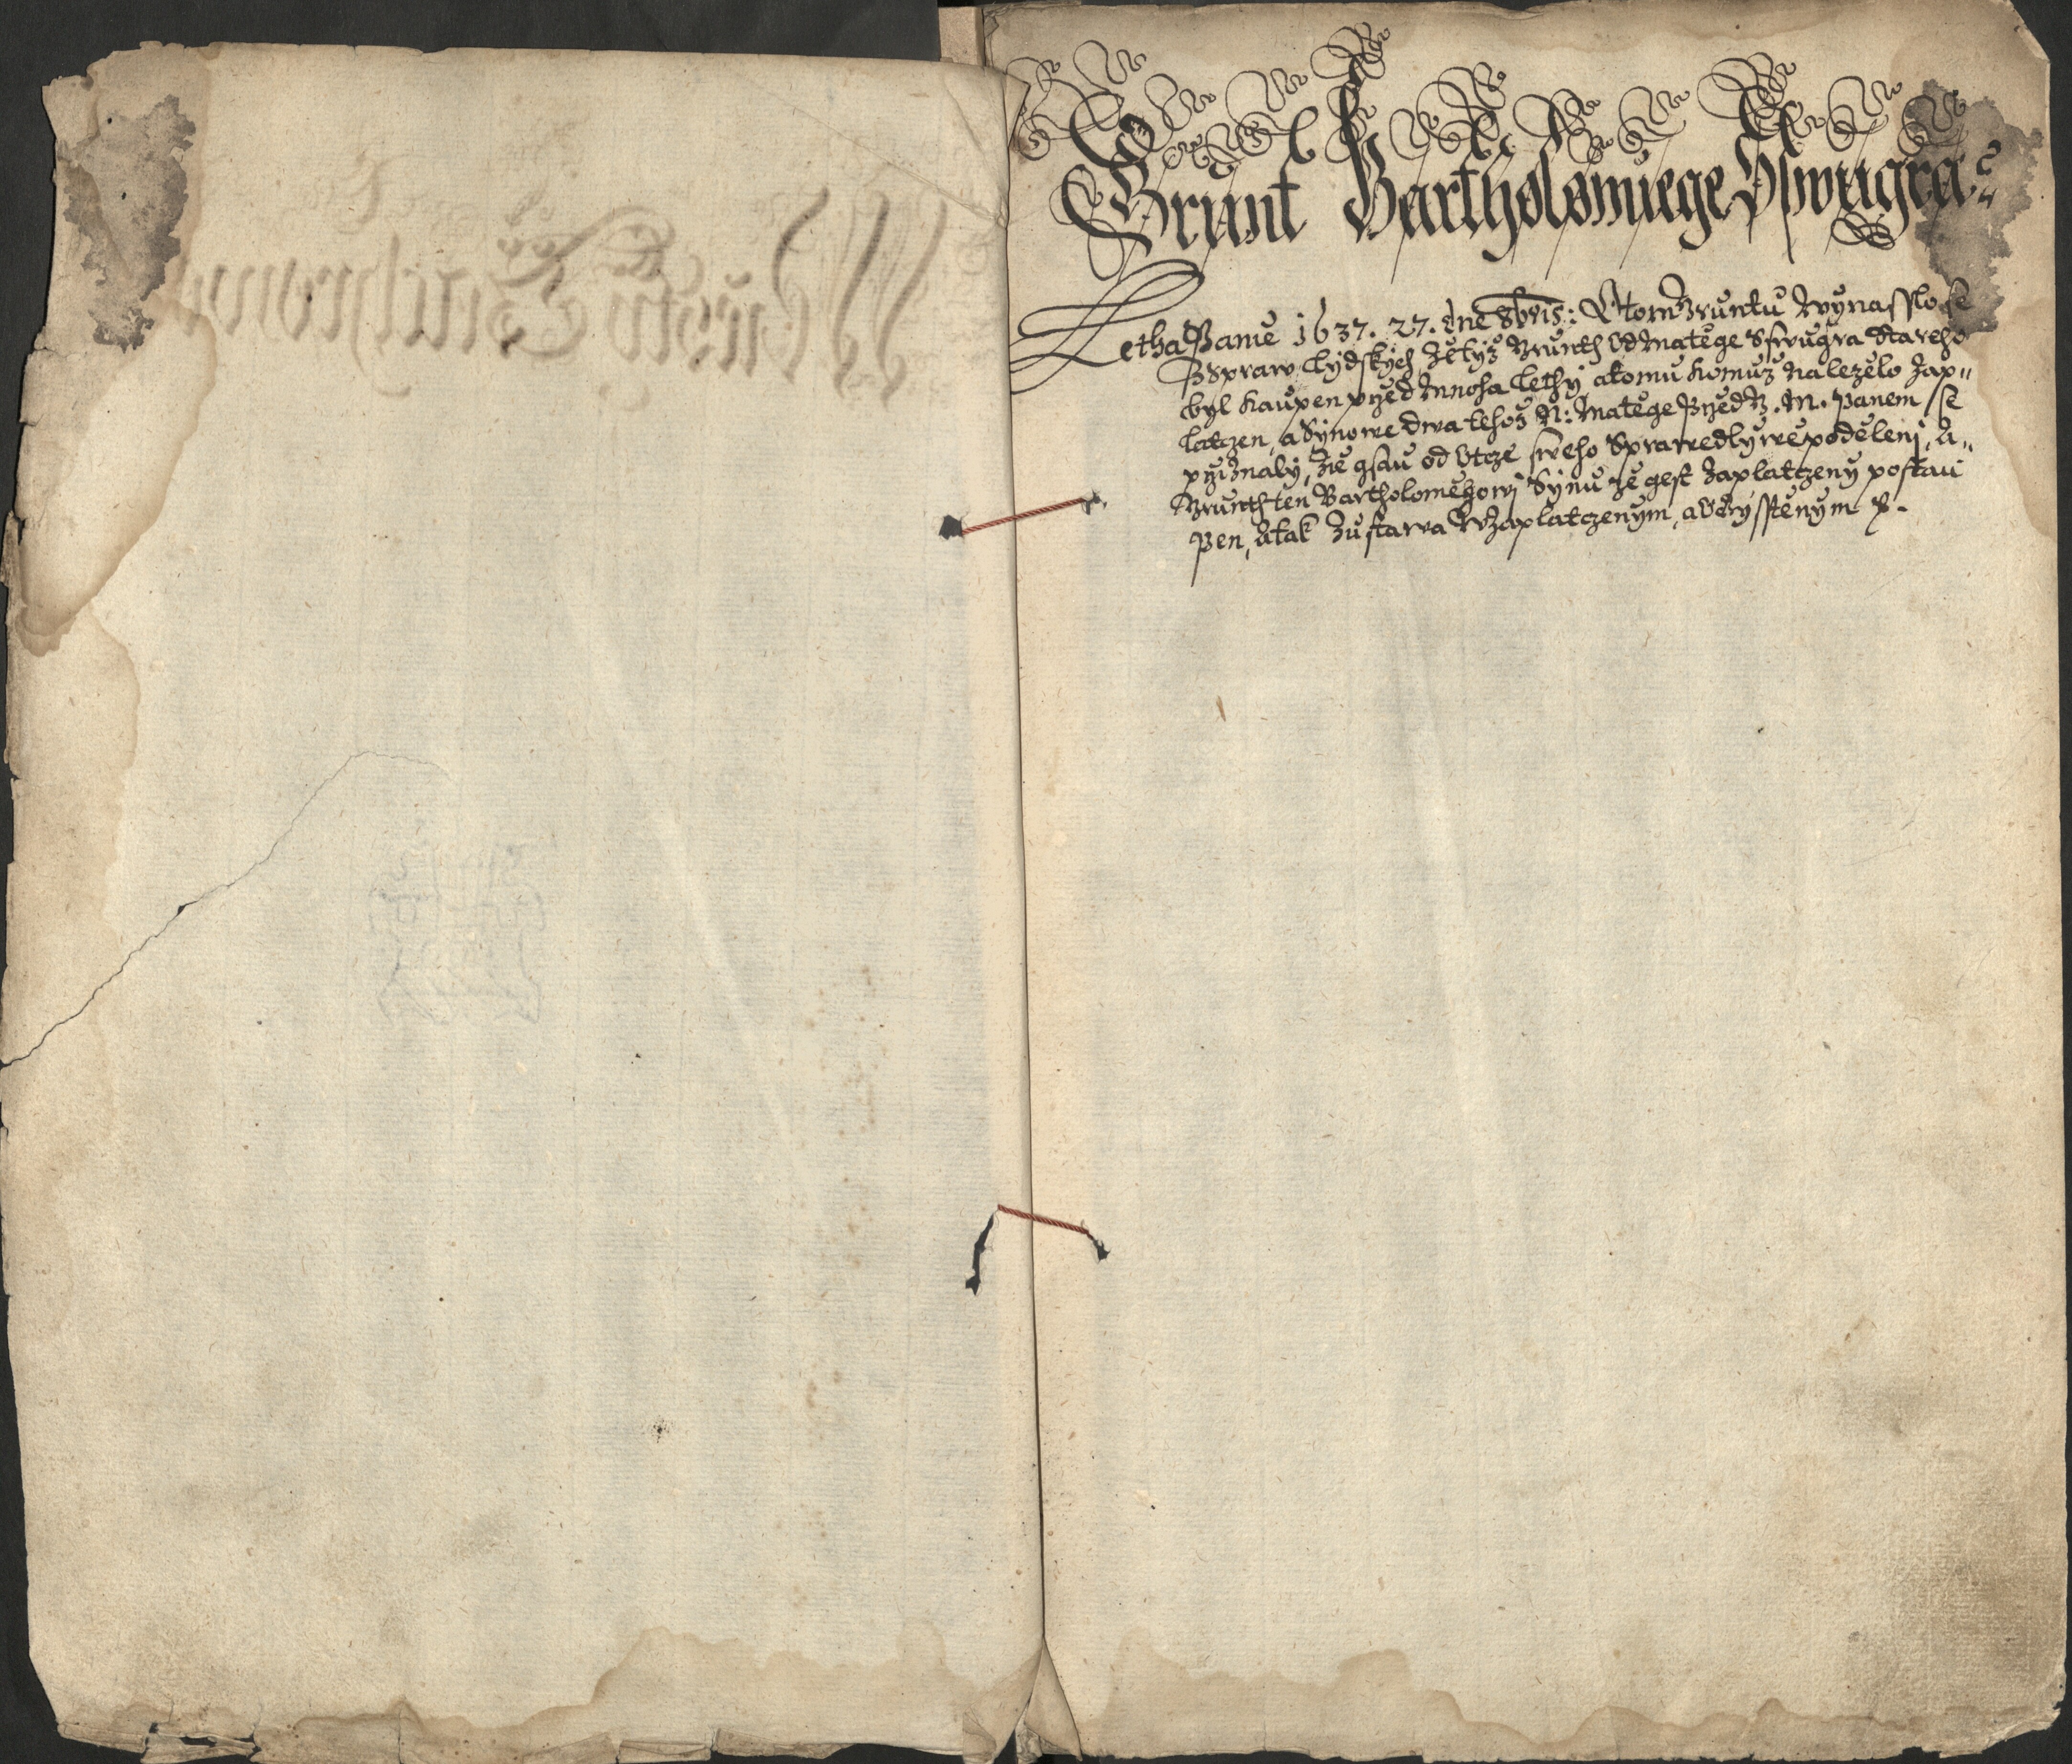 Grunt Bartholomiege Sswugra
Letha Panie 1637. 27. dne 8bris: O tom Gruntu wynasslo se
Z Spraw Lydskych, ze tyz Grunth od Matege Sswugra Stareho
byl kaupen przed mnoha lethy a tomu komuz nalezelo zap„
latczen, a Synowe dwa tehoz N: Matege przed G. M. Panem se
przyznaly, ze gsau od Otcze sweho Sprawedlywe podeleni, A„
Grunth ten Bartholomegowi Synu ze gest zaplatczeny postau
pen, A tak zustawa w zaplatczenym, a oczysstenym p.